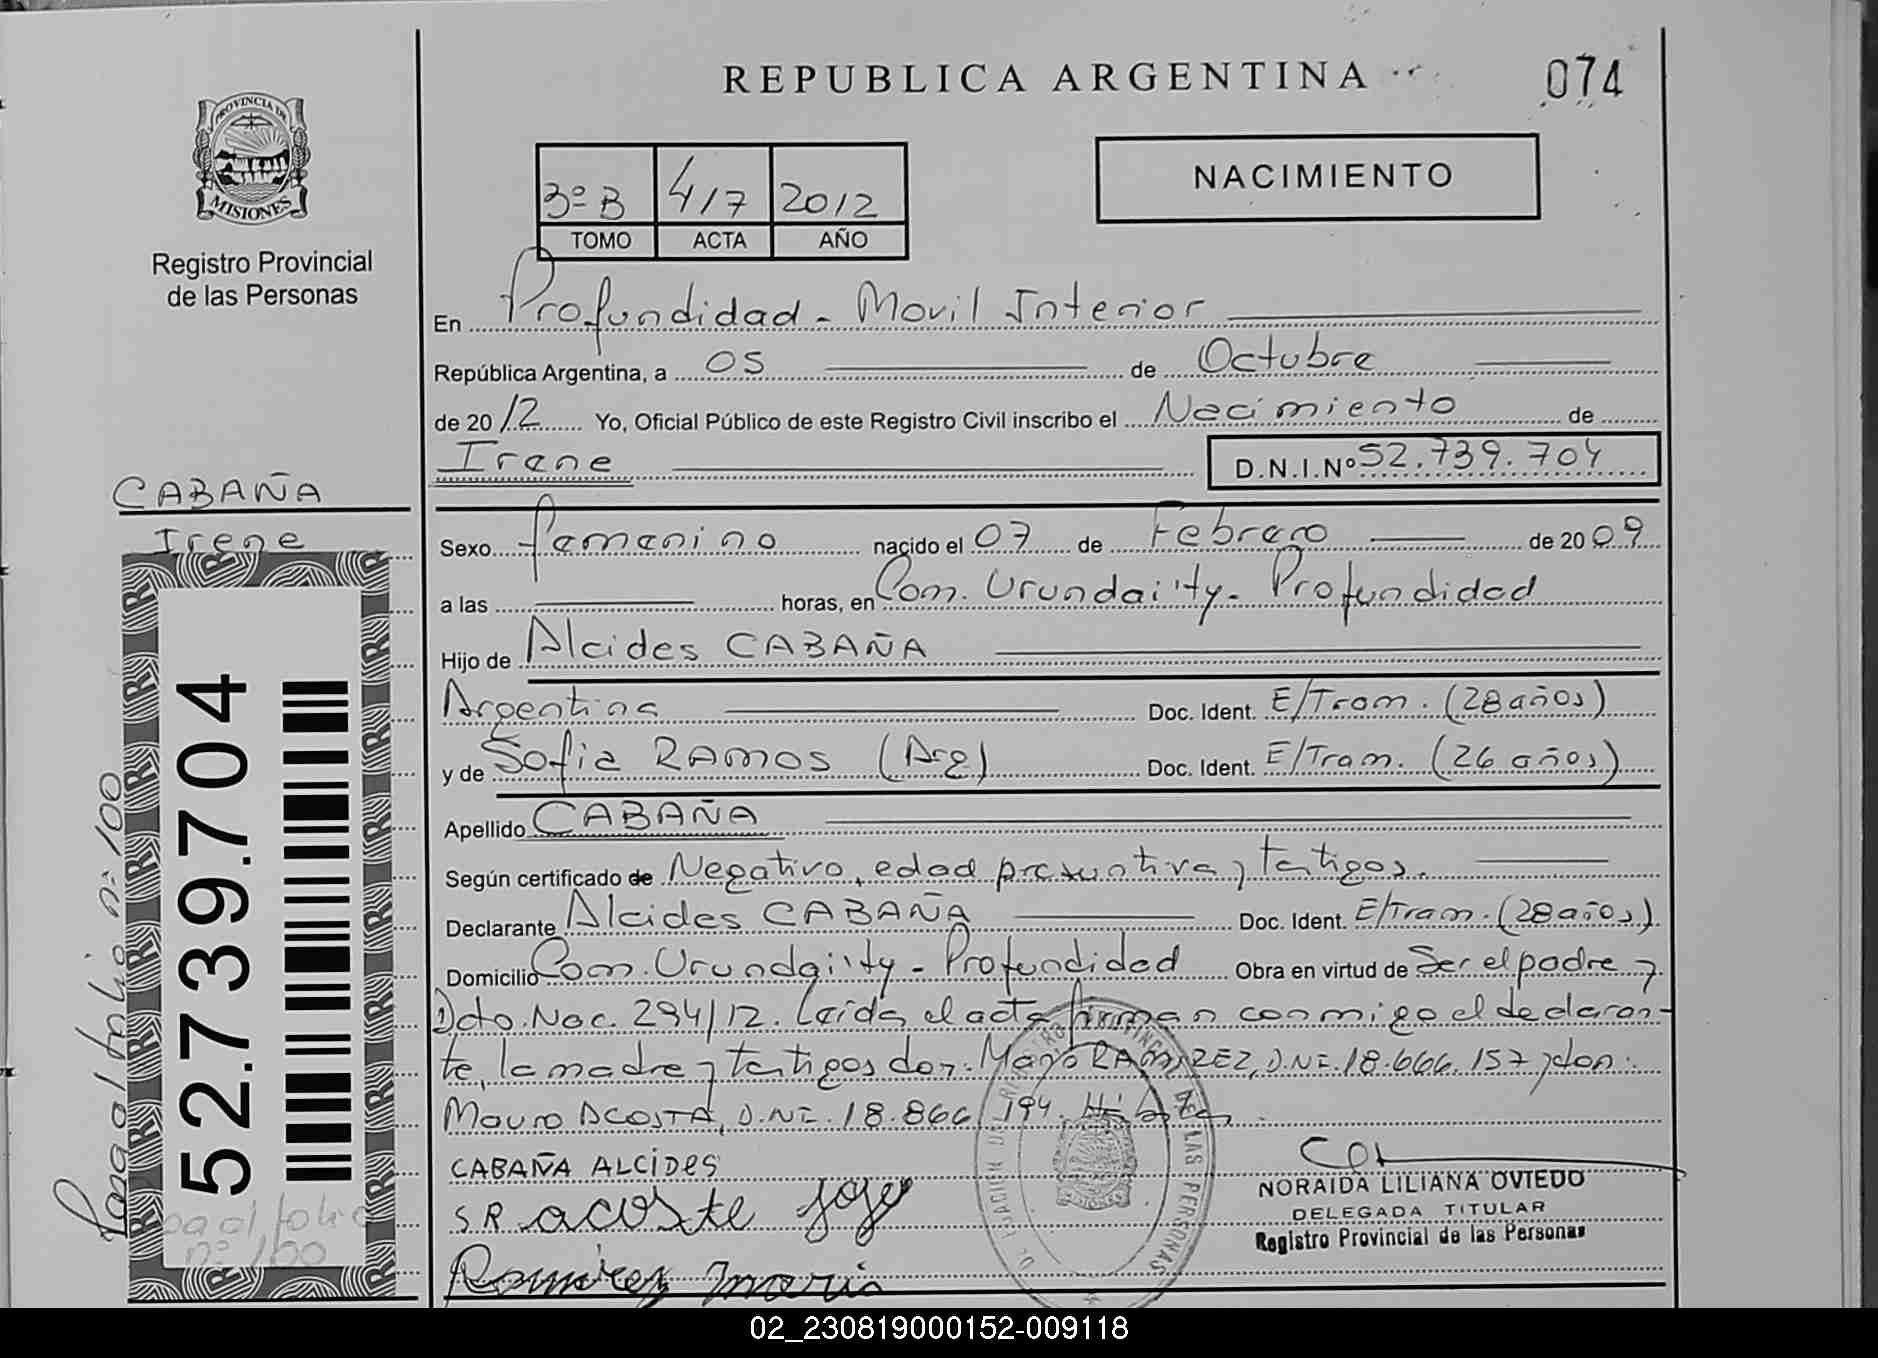 REPUBLICA ARGENTINA
074
PROVINCIA DE
MISIONES
Registro Provincial
de las Personas
3º B 417 2012
TOMO ACTA AÑO
NACIMIENTO
En Profundidad - Movil Interior
República Argentina, a 05 de Octubre
de 2012 Yo, Oficial Público de este Registro Civil inscribo el Nacimiento de
Irene D.N.I.Nº 52.739.704
CABAÑA
Irene
Sexo femenino nacido el 07 de Febrero de 2009
a las horas, en Com. Urundaity - Profundidad
Hijo de Alcides CABAÑA
Argentina Doc. Ident. E/Tram. (28 años)
y de Sofia RAMOS (Arg) Doc. Ident. E/Tram. (26 años)
Apellido CABAÑA
Según certificado de Negativo, edad presuntiva y testigos.
Declarante Alcides CABAÑA Doc. Ident. E/Tram. (28 años).
Domicilio Com. Urundaity - Profundidad Obra en virtud de Ser el padre y
Dcto. Nac. 294/12. Leída el acta firman conmigo el declaran-
te, la madre y testigos don: RAMIREZ, D.N.I. 18.666.157 y don:
Mauro ACOSTA, D.N.I. 18.866.194.
CABAÑA ALCIDES
S.R acoste
Ramirez mario
NORAIDA LILIANA OVIEDO
DELEGADA TITULAR
Registro Provincial de las Personas
52.739.704
Pasa al folio nº 100
pasa al folio
nº 100
02_230819000152-009118